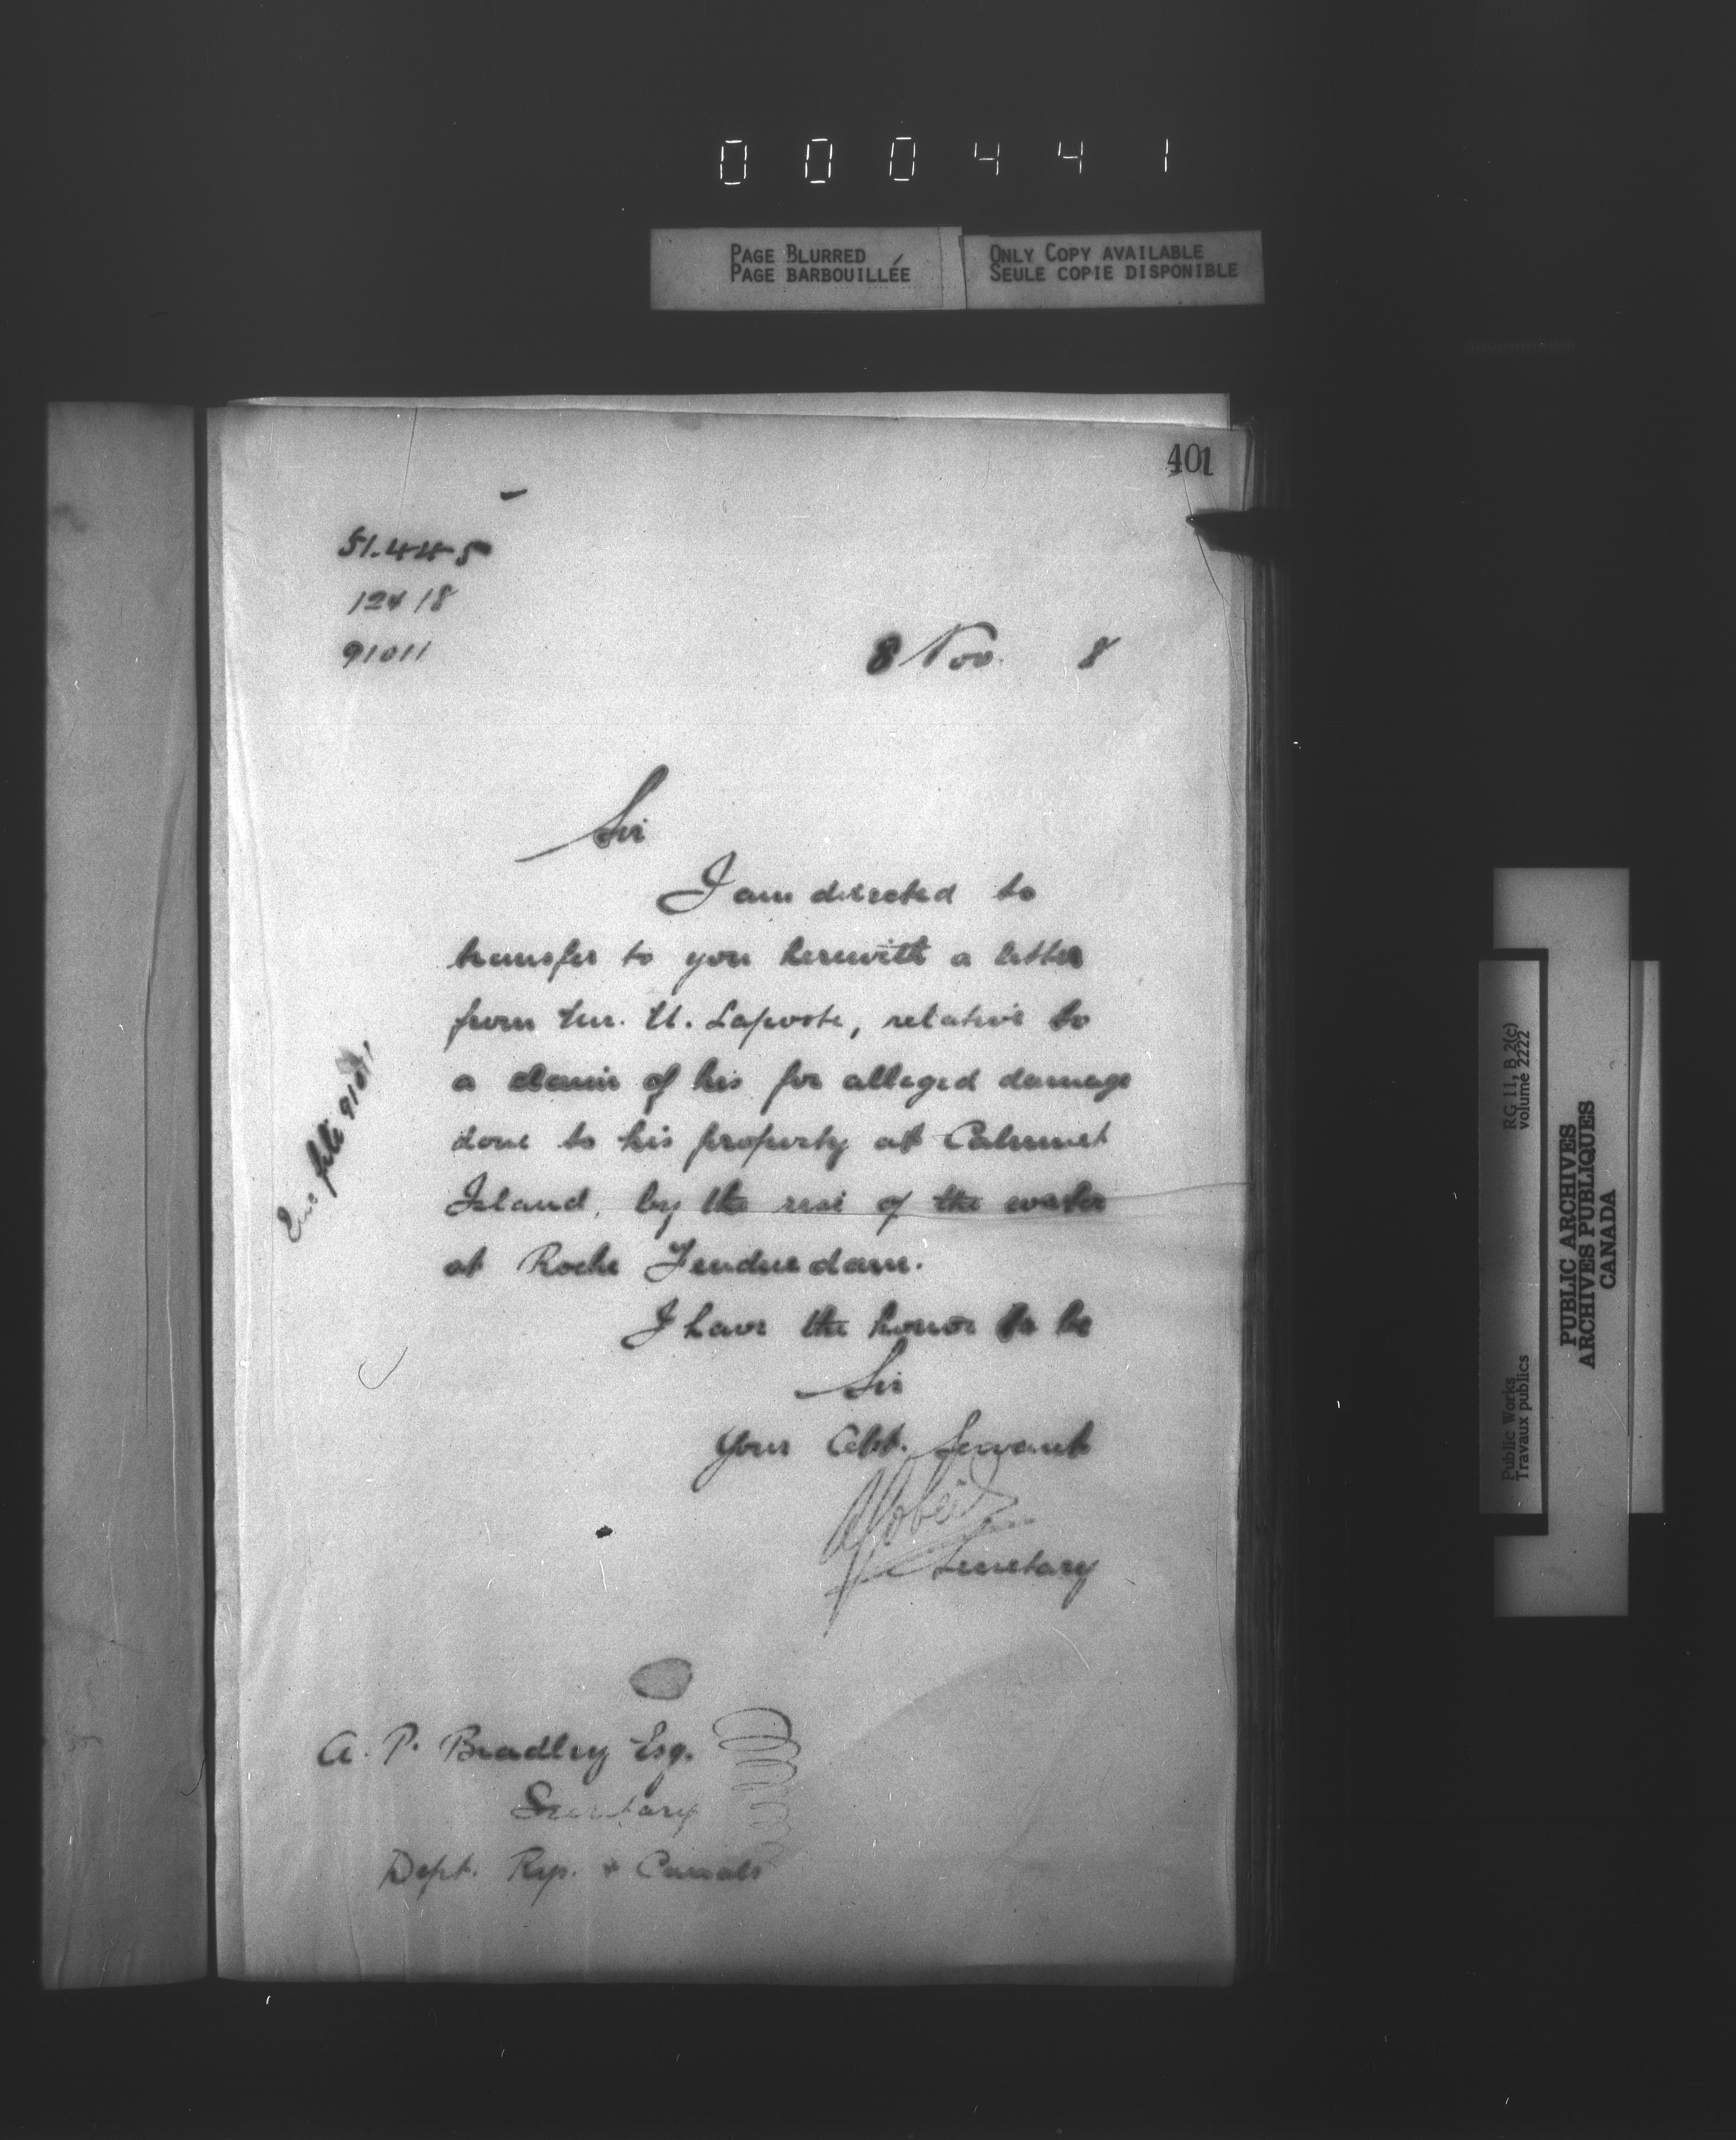 000441
PAGE BLURRED
PAGE BARBOUILLÉE
ONLY COPY AVAILABLE
SEULE COPIE DISPONIBLE
401
51.445
12418
91011
8 Nov. 8
Sir
I am directed to
transfer to you herewith a letter
from Mr. U. Laporte, relative to
a claim of his for alleged damage
done to his property at Calumet
Island, by the rise of the water
at Roche Fendue dam.
I have the honor to be
Sir
Your Obt. Servant
Secretary
Enc file 91011
A. P. Bradley Esq.
Secretary
Dept. Rys. & Canals
RG 11, B 2(c)
volume 2222
Public Works
Travaux publics
PUBLIC ARCHIVES
ARCHIVES PUBLIQUES
CANADA